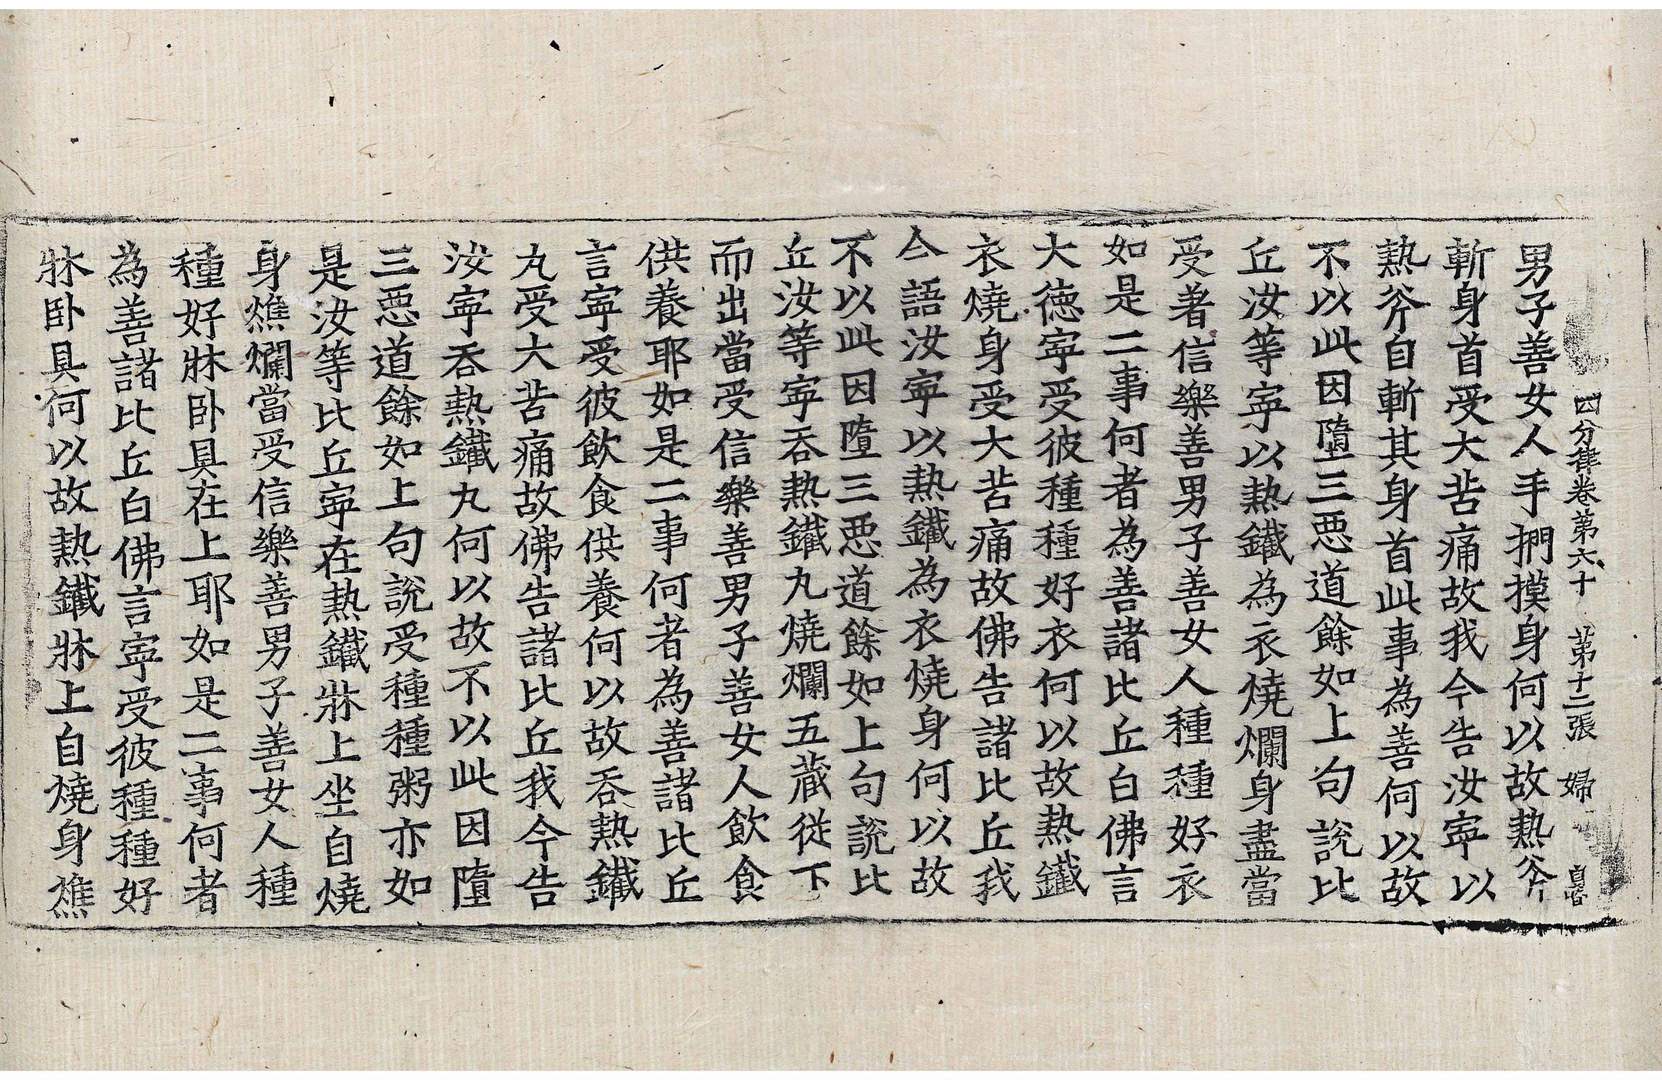 四分律卷第六十　第十二張　婦　自容
男子善女人手捫摸身何以故熱斧
斬身首受大苦痛故我今告汝寧以
熱斧自斬其身首此事為善何以故
不以此因墮三惡道餘如上句說比
丘汝等寧以熱鐵為衣燒爛身盡當
受著信樂善男子善女人種種好衣
如是二事何者為善諸比丘白佛言
大德寧受彼種種好衣何以故熱鐵
衣燒身受大苦痛故佛告諸比丘我
今語汝寧以熱鐵為衣燒身何以故
不以此因墮三惡道餘如上句說比
丘汝等寧吞熱鐵丸燒爛五藏從下
而出當受信樂善男子善女人飲食
供養耶如是二事何者為善諸比丘
言寧受彼飲食供養何以故吞熱鐵
丸受大苦痛故佛告諸比丘我今告
汝寧吞熱鐵丸何以故不以此因墮
三惡道餘如上句說受種種粥亦如
是汝等比丘寧在熱鐵牀上坐自燒
身燋爛當受信樂善男子善女人種
種好牀臥具在上耶如是二事何者
為善諸比丘白佛言寧受彼種種好
牀臥具何以故熱鐵牀上自燒身燋